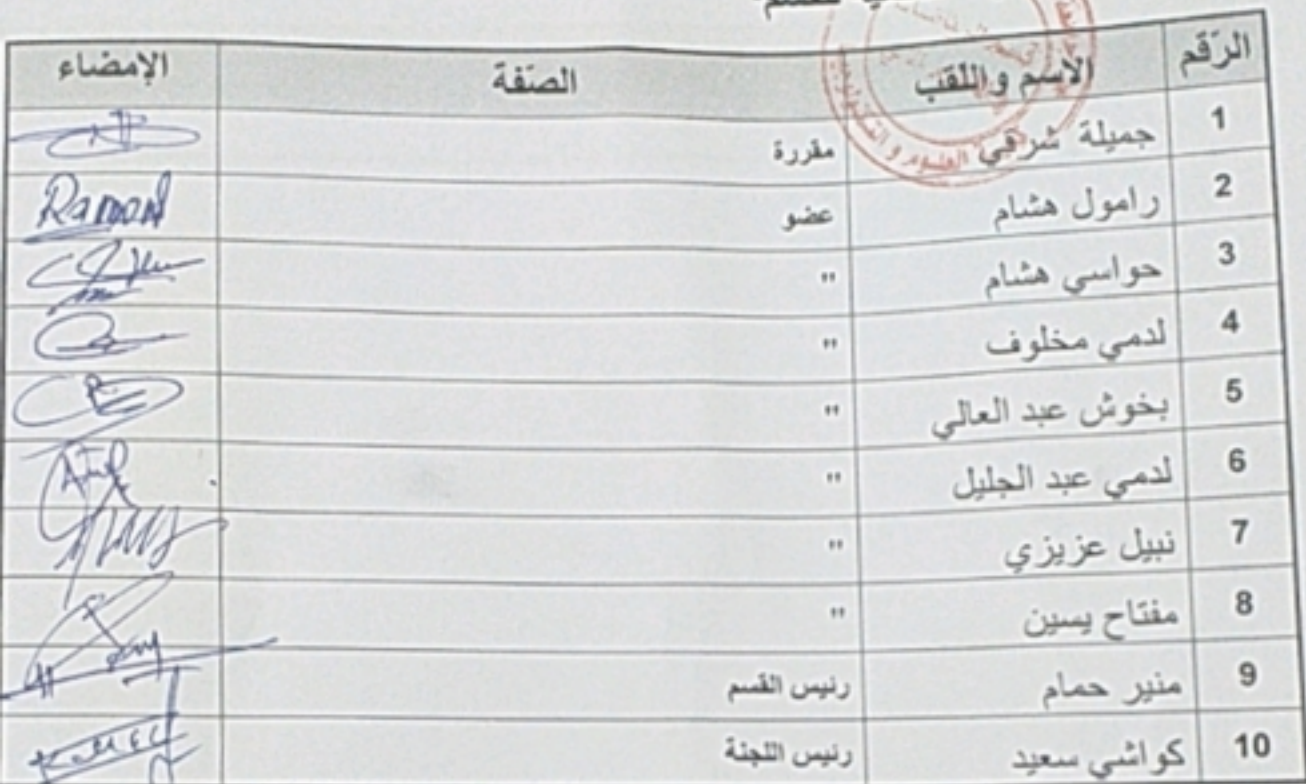 الرّقم الاسم واللقب الصّفة الإمضاء
1 جميلة شرفي مقررة
2 رامول هشام عضو
3 حواسي هشام "
4 لدمي مخلوف "
5 بخوش عبد العالي "
6 لدمي عبد الجليل "
7 نبيل عزيزي "
8 مفتاح يسين "
9 منير حمام رئيس القسم
10 كواشي سعيد رئيس اللجنة